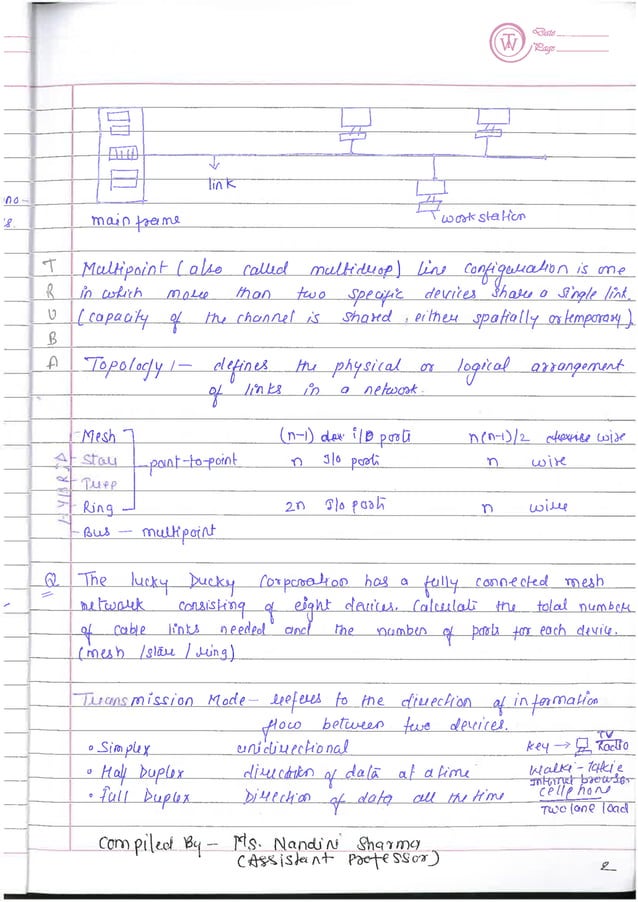 TW
Date
Page
no-
s.
link
main frame
workstation
T R U B A
Multipoint (also called multidrop) line configuration is one
in which more than two specific devices share a single link.
(capacity of the channel is shared, either spatially or temporary)
Topology :- defines the physical or logical arrangement
of links in a network.
HYBRID
Mesh (n-1) I/O ports n(n-1)/2 wire
Star point-to-point n I/O ports n wire
Tree
Ring 2n I/O ports n wire
Bus — multipoint
Q The lucky Ducky Corporation has a fully connected mesh
network consisting of eight devices. Calculate the total number
of cable links needed and the number of ports for each device.
(mesh / star / ring)
Transmission Mode - refers to the direction of information
flow between two devices.
• Simplex unidirectional key → TV Radio
• Half Duplex direction of data at a time Walki-Talkie
Internet browser
• Full Duplex Direction of data all the time cellphone
Two lane road
Compiled By - Ms. Nandini Sharma
(Assistant Professor)
2